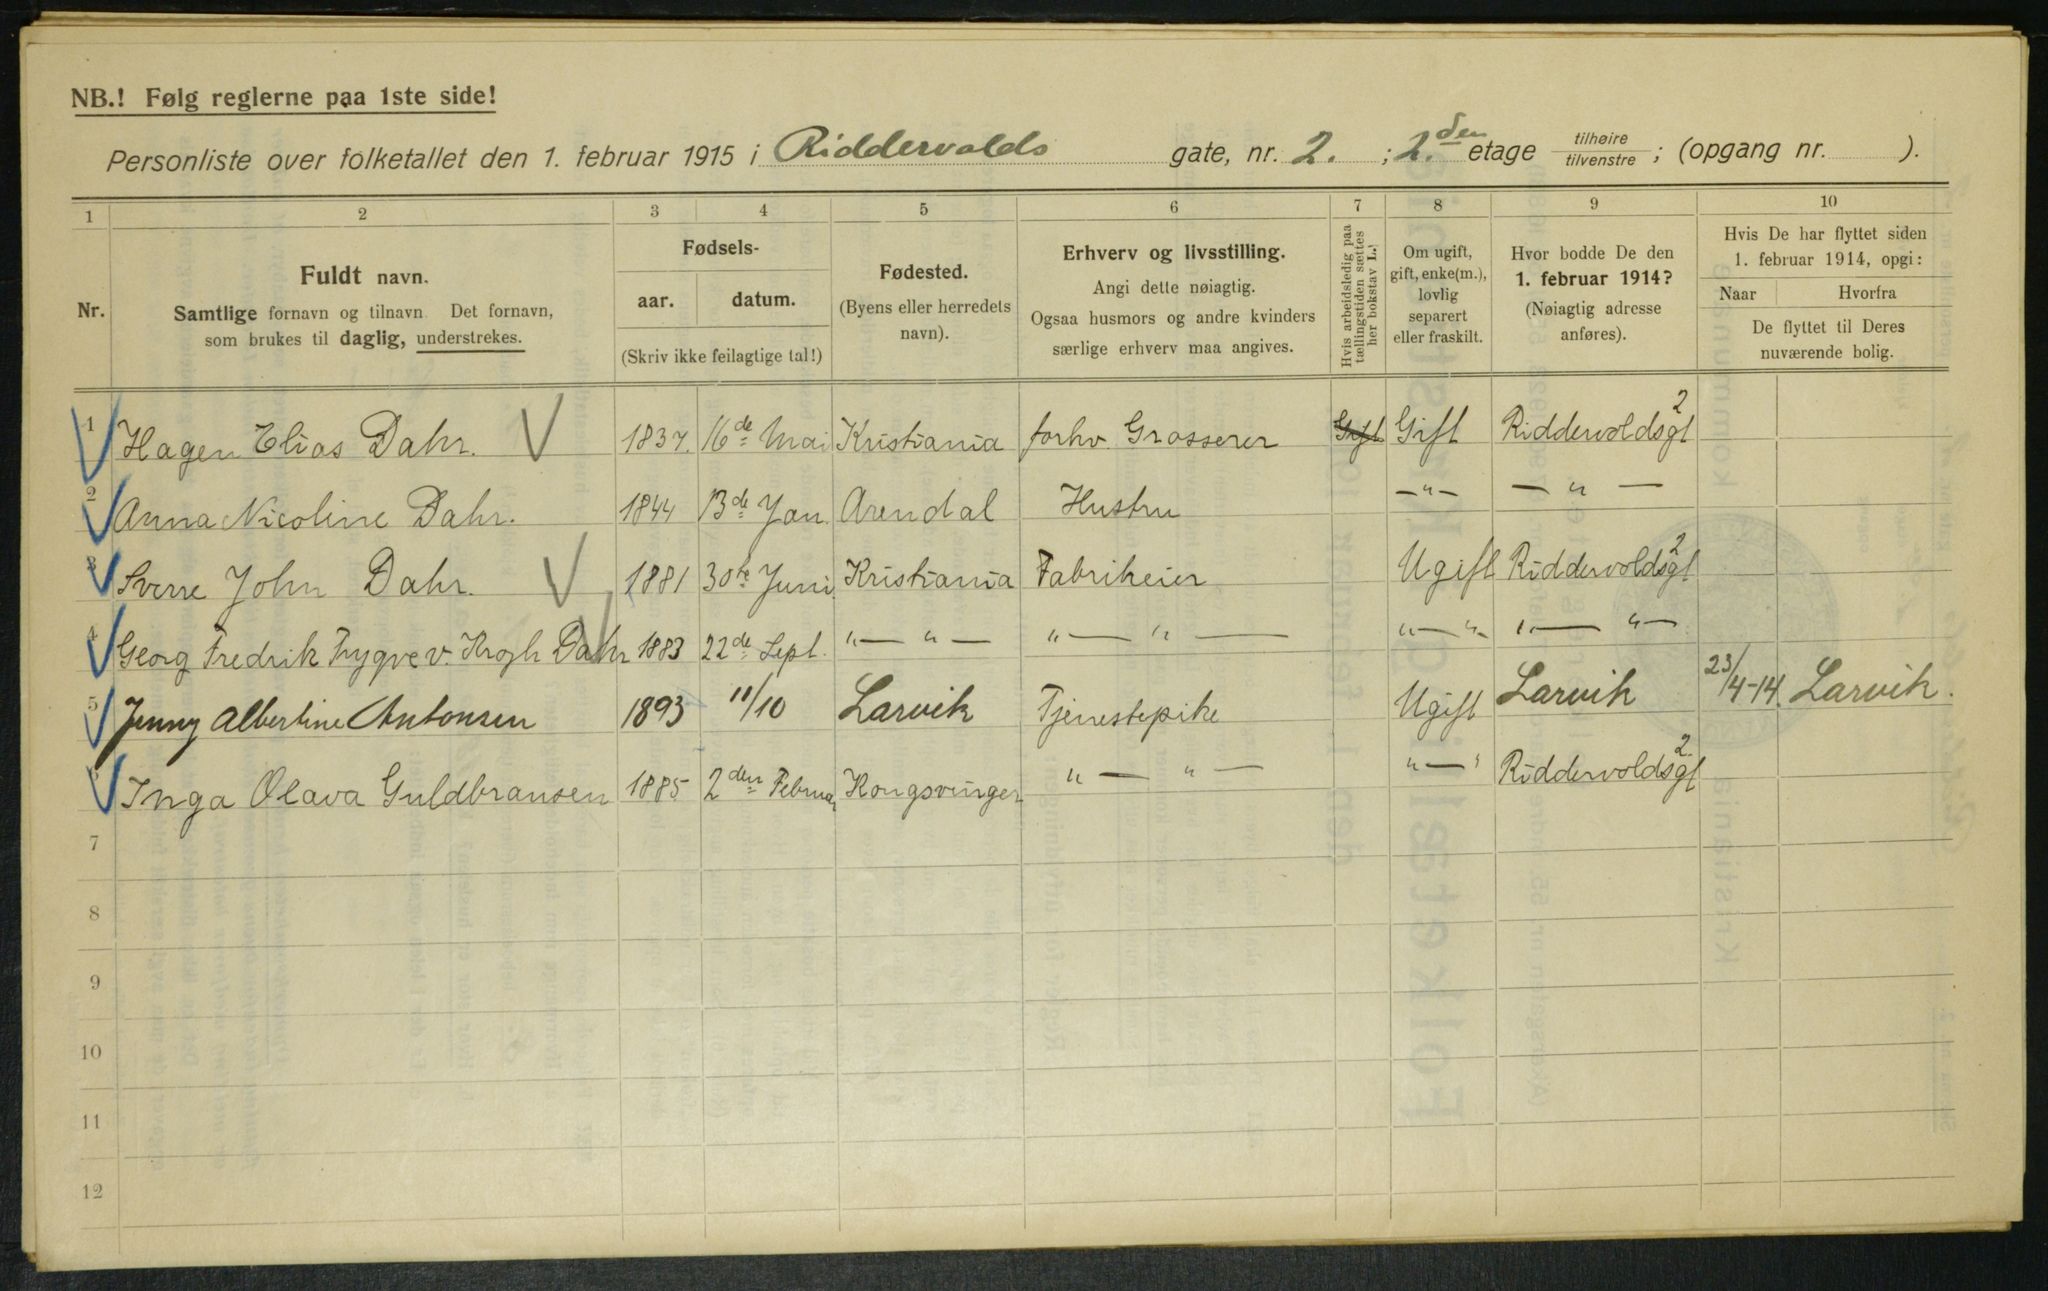 NB.! Følg reglerne paa 1ste side!
Personliste over folketallet den 1. februar 1915 i Riddervolds gate, nr. 2. ; 2.den etage tilhøire/tilvenstre ; (opgang nr. ).
1 2 3 4 5 6 7 8 9 10
Nr.
Fuldt navn.
Samtlige fornavn og tilnavn. Det fornavn,
som brukes til daglig, understrekes.
Fødsels-
aar. datum.
(Skriv ikke feilagtige tal!)
Fødested.
(Byens eller herredets
navn).
Erhverv og livsstilling.
Angi dette nøiagtig.
Ogsaa husmors og andre kvinders
særlige erhverv maa angives.
Hvis arbeidsledig paa
tællingstiden sættes
her bokstav L.!
Om ugift,
gift, enke(m.),
lovlig
separert
eller fraskilt.
Hvor bodde De den
1. februar 1914?
(Nøiagtig adresse
anføres).
Hvis De har flyttet siden
1. februar 1914, opgi:
Naar Hvorfra
De flyttet til Deres
nuværende bolig.
1 Hagen Elias Dahr. 1837. 16de Mai Kristiania forhv. Grosserer Gift Gift Riddervoldsgt 2
2 Anna Nicoline Dahr. 1844 13de Jan. Arendal Hustru —"— — " —
3 Sverre John Dahr. 1881 30te Juni Kristiania Fabrikeier Ugift Riddervoldsgt 2
4 Georg Fredrik Trygve v. Krogh Dahr 1883 22de Sept. "— " — "— " — "— " "— "—
5 Jenny Albertine Antonsen 1893 11/10 Larvik Tjenestepike Ugift Larvik 23/4-14. Larvik.
6 Inga Olava Guldbransen 1885 2den Februar Kongsvinger " — " — "—" Riddervoldsgt 2
7
8
9
10
11
12